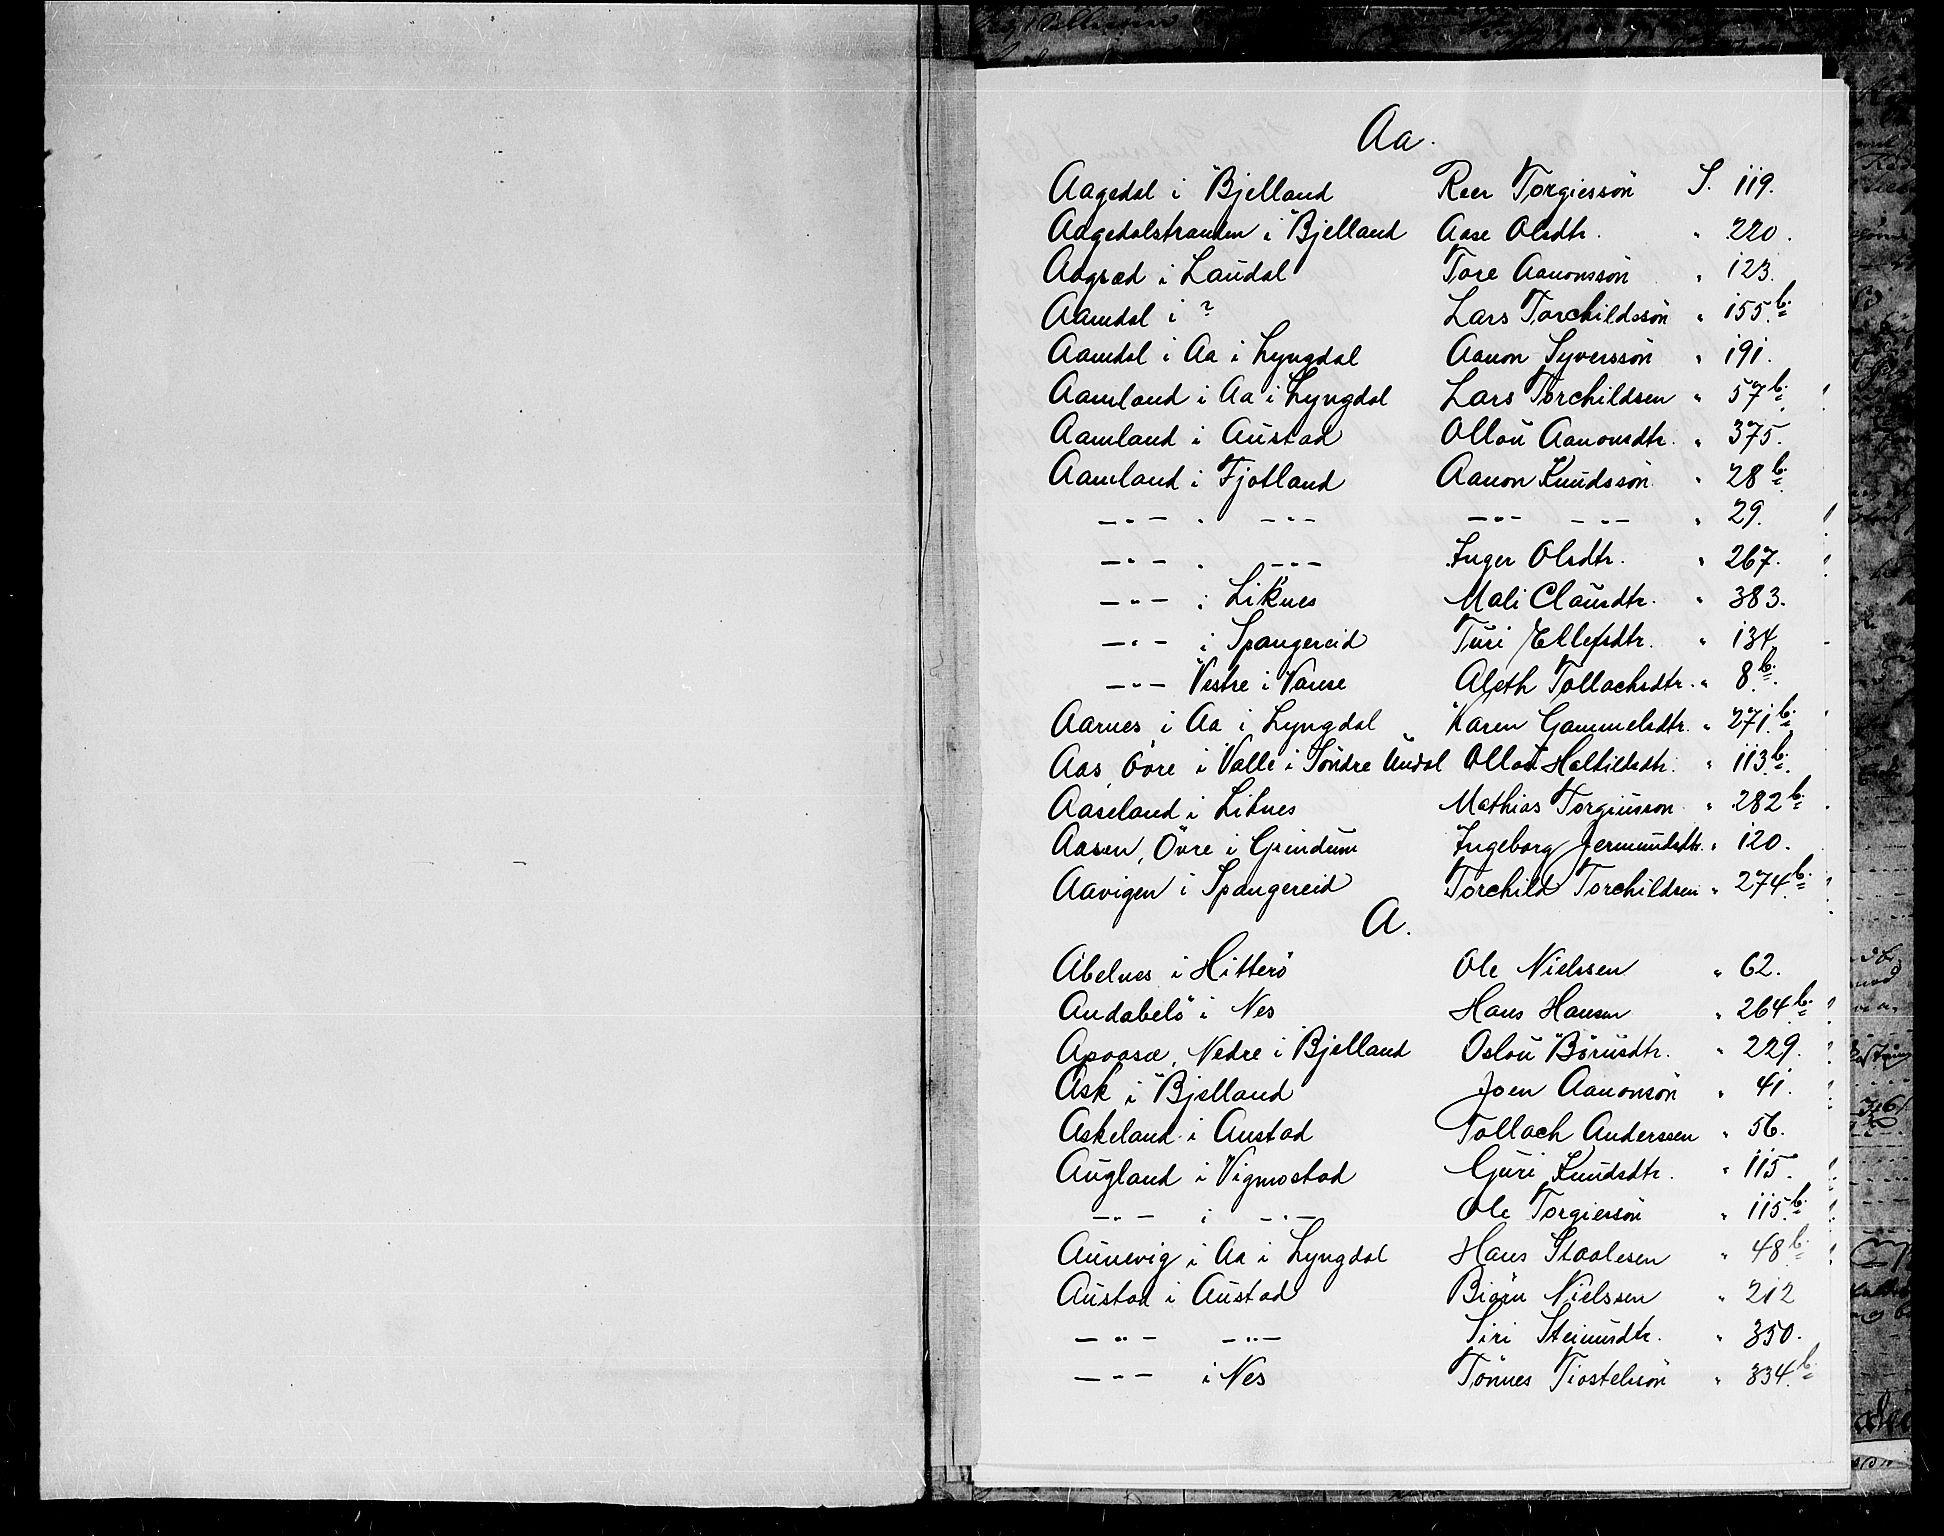 Aa.
Aagedal i Bjelland Reer Torgiessön S. 119.
Aagedalstranden i Bjelland Aase Olsdtr. " 220.
Aagræd i Laudal Tore Aanonssön " 123.
Aamdal i ? Lars Torchildssön " 155 b.
Aamdal i Aa i Lyngdal Aanon Syverssön " 191.
Aamland i Aa i Lyngdal Lars Torchildsen " 57 b.
Aamland i Austad Ollou Aanonsdtr. " 375.
Aamland i Fjotland Aanon Knudssön " 28 b.
—"— . —"— —"— —"— " 29.
—"— . —"— Inger Olsdtr. " 267.
—"— i Liknes Mali Clausdtr. " 383.
—"— i Spangereid Turi Ellefsdtr. " 134
—"— Vestre i Vanse Aleth Tollachsdtr. " 8 b.
Aarnes i Aa i Lyngdal Karen Gammelsdtr. " 271 b.
Aas, Övre i Valle i Söndre Undal Ollou " 113 b.
Aaseland i Liknes Mathias Torgiusson " 282 b.
Aasen, Övre i Grindum Ingeborg Jermundsdtr. " 120.
Aavigen i Spangereid Torchild Torchildsen " 274 b.
A.
Abelnes i Hitterö Ole Nielssen " 62.
Andabelö i Nes Hans Hansen " 264 b.
Apaasæ, Nedre i Bjelland Oslou Börusdtr. " 229.
Ask i Bjelland Joen Aanonsön " 41.
Askeland i Austad Tollach Anderssen " 56.
Augland i Vigmostad Guri Knudsdtr. " 115.
—"— i —"— Ole Torgiersön " 115 b.
Aunevig i Aa i Lyngdal Hans Staalesen " 48 b.
Austad i Austad Biörn Nielssen " 212
—"— —"— Siri Steinersdtr. " 350.
—"— i Nes Tönnes Tiostelssön " 334 b.